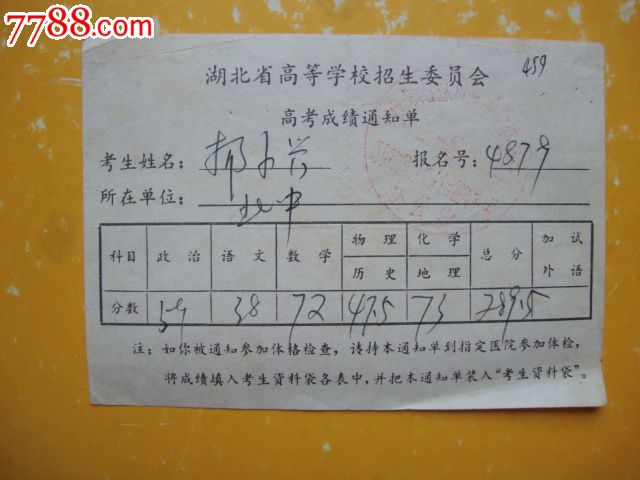 7788.com
459
湖北省高等学校招生委员会
高考成绩通知单
考生姓名： 报名号：4879
所在单位： 北中
科目 政治 语文 数学 物理 化学 总分 加试
历史 地理 外语
分数 59 38 72 47.5 73 289.5
注：如你被通知参加体格检查，请持本通知单到指定医院参加体检，
将成绩填入考生资料袋各表中，并把本通知单装入“考生资料袋”。